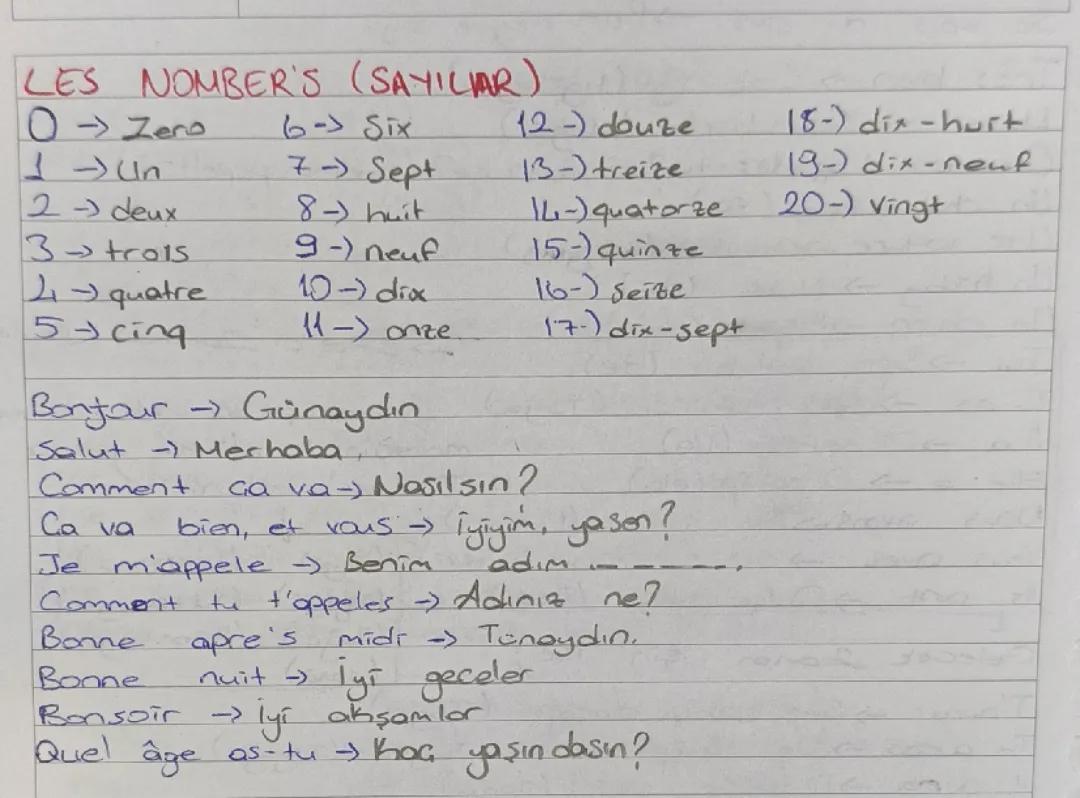 LES NOMBER'S (SAYILAR)
0 → Zero 6 → Six 12-) douze 18-) dix-huıt
1 → Un 7 → Sept 13-) treize 19-) dix-neuf
2 → deux 8 → huit 14-) quatorze 20-) vingt
3 → troıs 9 → neuf 15-) quinze
4 → quatre 10 → dix 16-) Seize
5 → cinq 11 → onze 17-) dix-sept
Bonjour → Günaydın
Salut → Merhaba
Comment ça va → Nasılsın?
Ca va bien, et vous → iyiyim, ya sen?
Je m'appele → Benim adım ------.
Comment tu t'appeles → Adınız ne?
Bonne apre's midi → Tünaydın.
Bonne nuit → İyi geceler
Bonsoir → İyi akşamlar
Quel âge as-tu → Kaç yaşındasın?